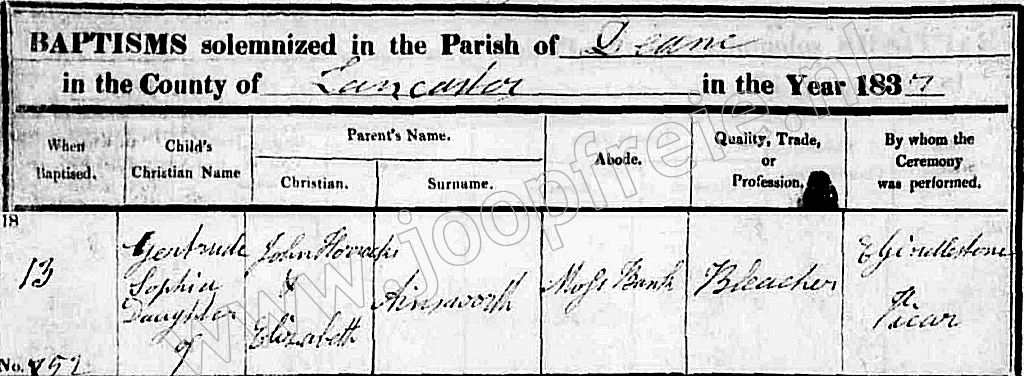 BAPTISMS solemnized in the Parish of Deane
in the County of Lancaster in the Year 1837
When Baptised.
Child's Christian Name
Parent's Name.
Christian.
Surname.
Abode.
Quality, Trade, or Profession.
By whom the Ceremony was performed.
18
13
Gertrude
Sophia
Daughter
of
John Horrocks
&
Elizabeth
Ainsworth
Moss Bank
Bleacher
E Girdlestone
Vicar
No. 852
www.joopfreie.nl